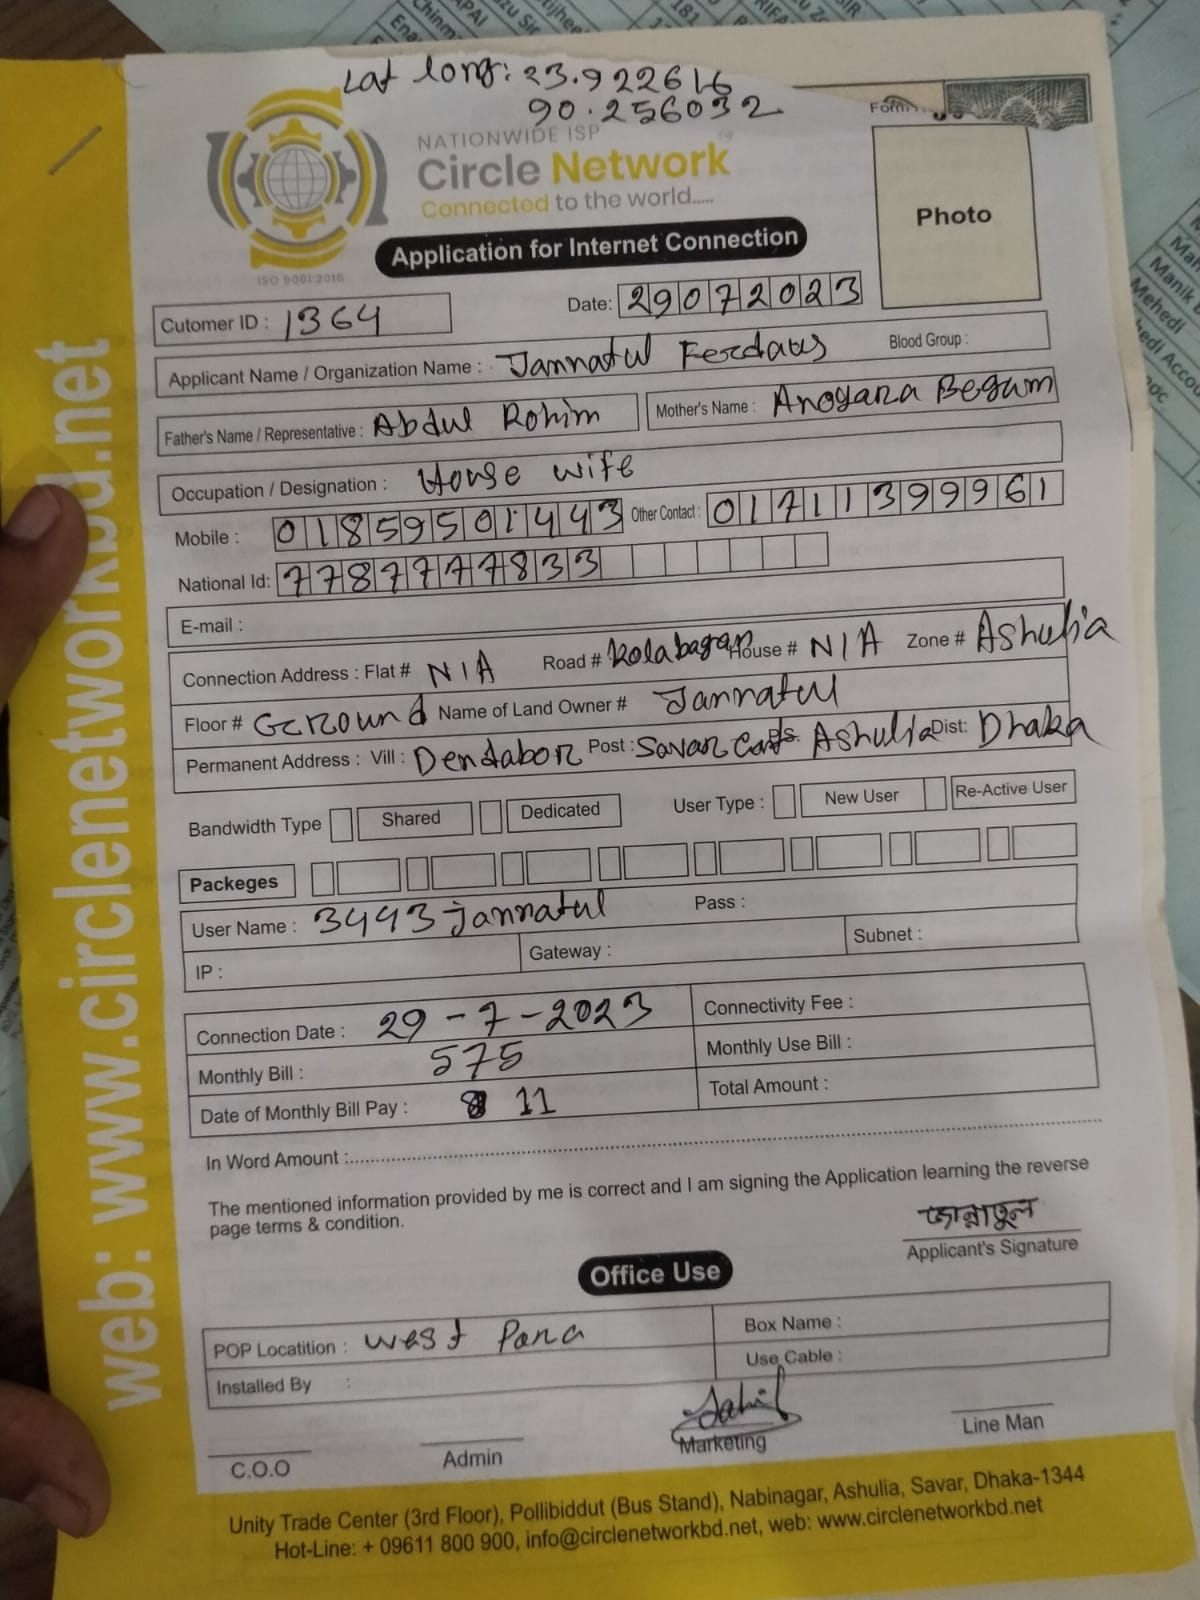 Lat long: 23.922616
90.256032
NATIONWIDE ISP
Circle Network
Connected to the world.....
ISO 9001:2015
Photo
Application for Internet Connection
Cutomer ID : 1364
Date: 29072023
Applicant Name / Organization Name : Jannatul Ferdaus Blood Group :
Father's Name / Representative : Abdul Rohim Mother's Name : Anoyara Begum
Occupation / Designation : House wife
Mobile : 01859501443 Other Contact : 01711399961
National Id: 7787777833
E-mail :
Connection Address : Flat # N/A Road # Kolabagan House # N/A Zone # Ashulia
Floor # Ground Name of Land Owner # Jannatul
Permanent Address : Vill : Dendabor Post : Savar Cant P.S. Ashulia Dist: Dhaka
Bandwidth Type Shared Dedicated User Type : New User Re-Active User
Packeges
User Name : 3493jannatul Pass :
IP : Gateway : Subnet :
Connection Date : 29-7-2023 Connectivity Fee :
Monthly Bill : 575 Monthly Use Bill :
Date of Monthly Bill Pay : 11 Total Amount :
In Word Amount :
The mentioned information provided by me is correct and I am signing the Application learning the reverse
page terms & condition.
জান্নাতুল
Applicant's Signature
Office Use
POP Locatition : West Para Box Name :
Installed By : Use Cable :
C.O.O Admin Marketing Line Man
Unity Trade Center (3rd Floor), Pollibiddut (Bus Stand), Nabinagar, Ashulia, Savar, Dhaka-1344
Hot-Line: + 09611 800 900, info@circlenetworkbd.net, web: www.circlenetworkbd.net
web: www.circlenetworkbd.net